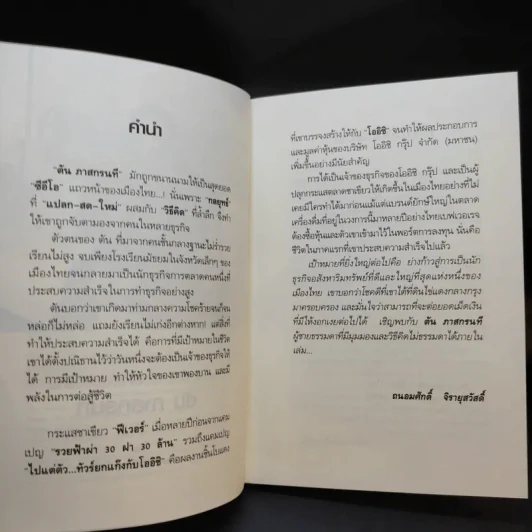 คำนำ
"ตัน ภาสกรนที" มักถูกขนานนามให้เป็นสุดยอด
"ซีอีโอ" แถวหน้าของเมืองไทย...! นั่นเพราะ "กลยุทธ์"
ที่ "แปลก-สด-ใหม่" ผสมกับ "วิธีคิด" ที่ล้ำลึก จึงทำ
ให้เขาถูกจับตามองจากคนในหลายธุรกิจ
ตัวตนของ ตัน ที่มาจากคนชั้นกลางฐานะไม่ร่ำรวย
เรียนไม่สูง จบเพียงโรงเรียนมัธยมในจังหวัดเล็กๆ ของ
เมืองไทยจนกลายมาเป็นนักธุรกิจการตลาดคนหนึ่งที่
ประสบความสำเร็จในการทำธุรกิจอย่างสูง
ตันบอกว่าเขาเกิดมาท่ามกลางความโชคร้ายจนก็จน
หล่อก็ไม่หล่อ แถมยังเรียนไม่เก่งอีกต่างหาก! แต่สิ่งที่
ทำให้ประสบความสำเร็จได้ คือการที่มีเป้าหมายในชีวิต
เขาได้ตั้งปณิธานไว้ว่าวันหนึ่งจะต้องเป็นเจ้าของธุรกิจให้
ได้ การมีเป้าหมาย ทำให้หัวใจของเขาพองบาน และมี
พลังในการต่อสู้ชีวิต
กระแสชาเขียว "ฟีเวอร์" เมื่อหลายปีก่อนจากแคม
เปญ "รวยฟ้าผ่า 30 ฝา 30 ล้าน" รวมถึงแคมเปญ
"ไปแต่ตัว...ทัวร์ยกแก๊งกับโออิชิ" คือผลงานชิ้นโบแดง
ที่เขาบรรจงสร้างให้กับ "โออิชิ" จนทำให้ผลประกอบการ
และมูลค่าหุ้นของบริษัท โออิชิ กรุ๊ป จำกัด (มหาชน)
เพิ่มขึ้นอย่างมีนัยสำคัญ
การได้เป็นเจ้าของธุรกิจของโออิชิ กรุ๊ป และเป็นผู้
ปลุกกระแสตลาดชาเขียวให้เกิดขึ้นในเมืองไทยอย่างที่ไม่
เคยมีใครทำได้มาก่อนแม้แต่แบรนด์ยักษ์ใหญ่ในตลาด
เครื่องดื่มที่อยู่ในวงการนี้มาหลายปีอย่างไทยเบฟเวอเรจ
ต้องซื้อหุ้นและตัวเขาเข้ามาไว้ในพอร์ตการลงทุน นั่นคือ
ชีวิตในภาคแรกที่เขาประสบความสำเร็จไปแล้ว
เป้าหมายที่ยิ่งใหญ่ต่อไปคือ ย่างก้าวสู่การเป็นนัก
ธุรกิจอสังหาริมทรัพย์ที่ดีและใหญ่ที่สุดแห่งหนึ่งของ
เมืองไทย เขาบอกว่าโชคดีที่เขาได้ที่ดินใช่แดงกลางกรุง
มาครอบครอง และมั่นใจว่าสามารถที่จะต่อยอดเม็ดเงิน
ที่มีให้งอกเงยต่อไปได้ เชิญพบกับ ตัน ภาสกรนที
ผู้ชายธรรมดาที่มีมุมมองและวิธีคิดไม่ธรรมดาได้ภายใน
เล่ม...
ถนอมศักดิ์ จิรายุสวัสดิ์